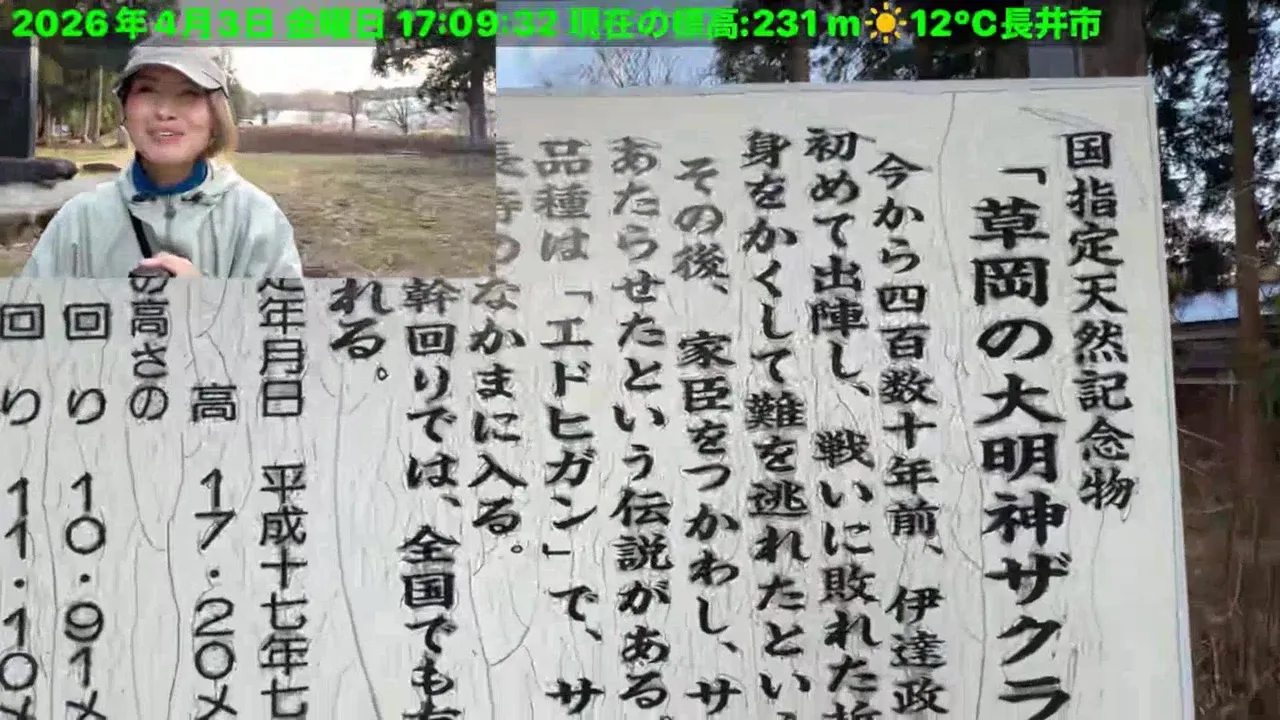 2026年4月3日 金曜日 17:09:32 現在の標高:231m☀️12℃長井市
国指定天然記念物
「草岡の大明神ザクラ
今から四百数十年前、伊達政
初めて出陣し、戦いに敗れた折
身をかくして難を逃れたとい
その後、家臣をつかわし、サ
あたらせたという伝説がある。
品種は「エドヒガン」で、サ
なかまに入る。
幹回りでは、全国でも有
れる。
年月日 平成十七年七
高 17.20メ
の高さの
回り 10.91メ
回り 11.10メ